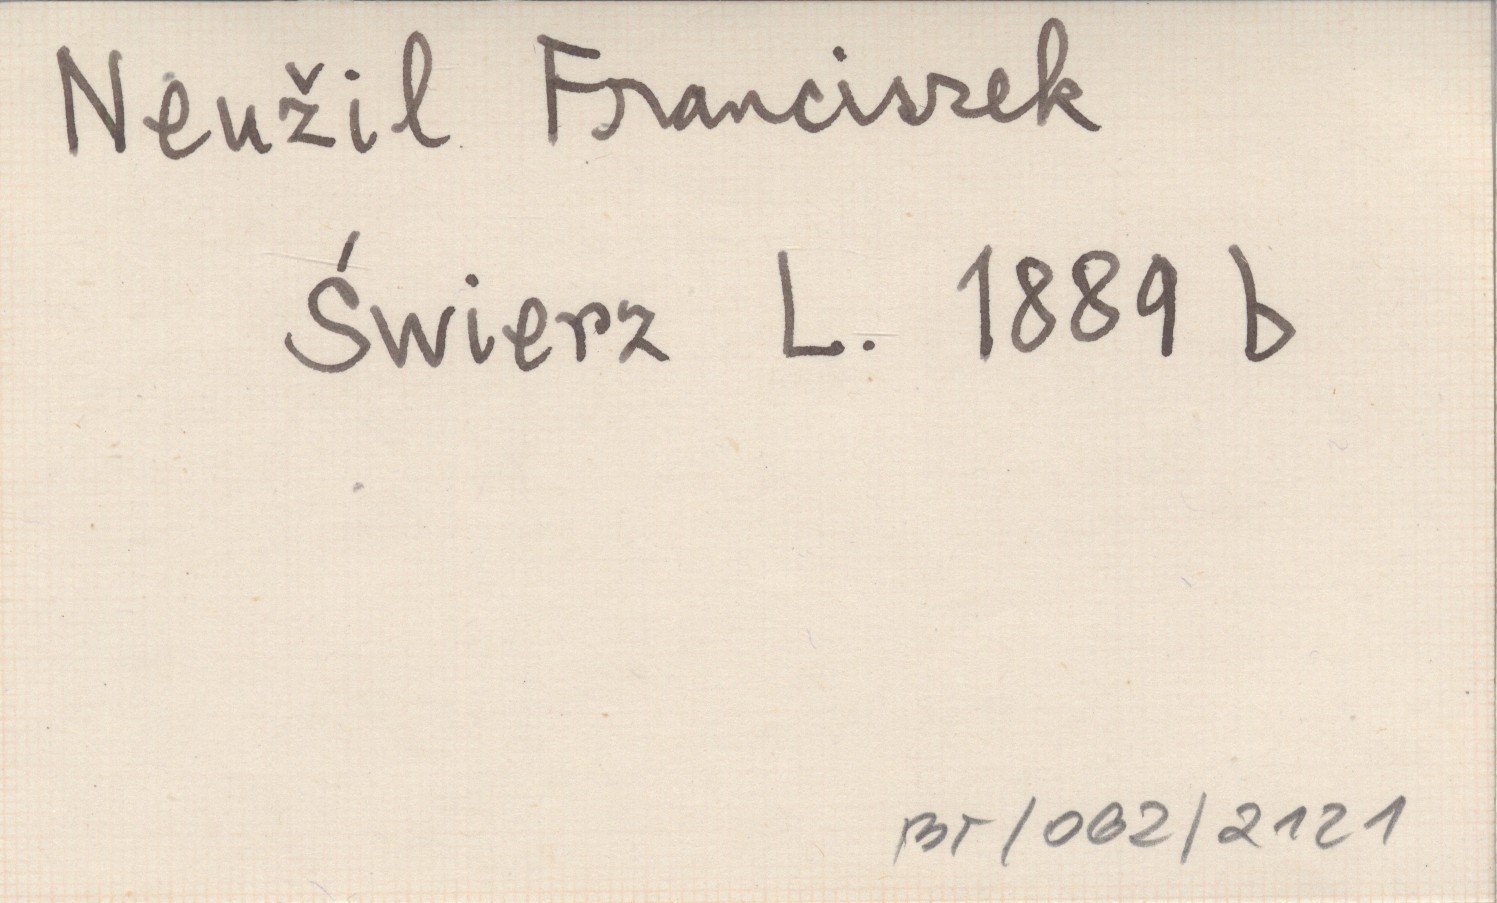 Neužil Franciszek
Świerz L. 1889 b
BT/OBZ/2121